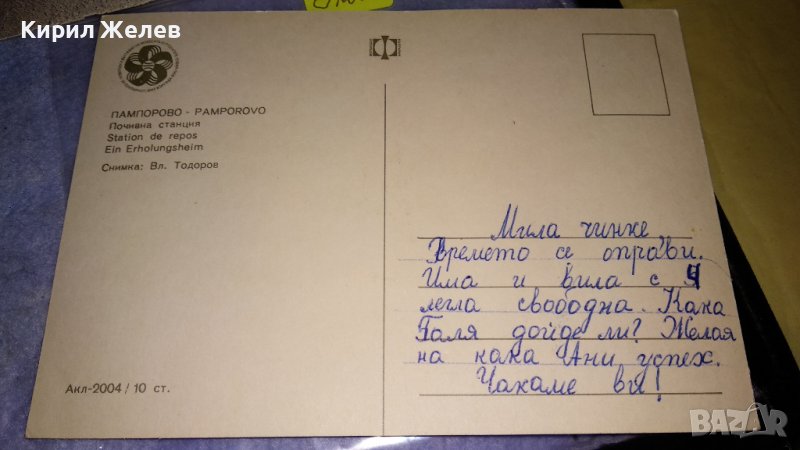 Кирил Желев
ПАМПОРОВО - PAMPOROVO
Почивна станция
Station de repos
Ein Erholungsheim
Снимка: Вл. Тодоров
Мила чинке
Времето се оправи.
Има и вила с 4
легла свободна. Кака
Галя дойде ли? Желая
на кака Ани успех.
Чакаме ви!
Акл-2004 / 10 ст.
BAZAR